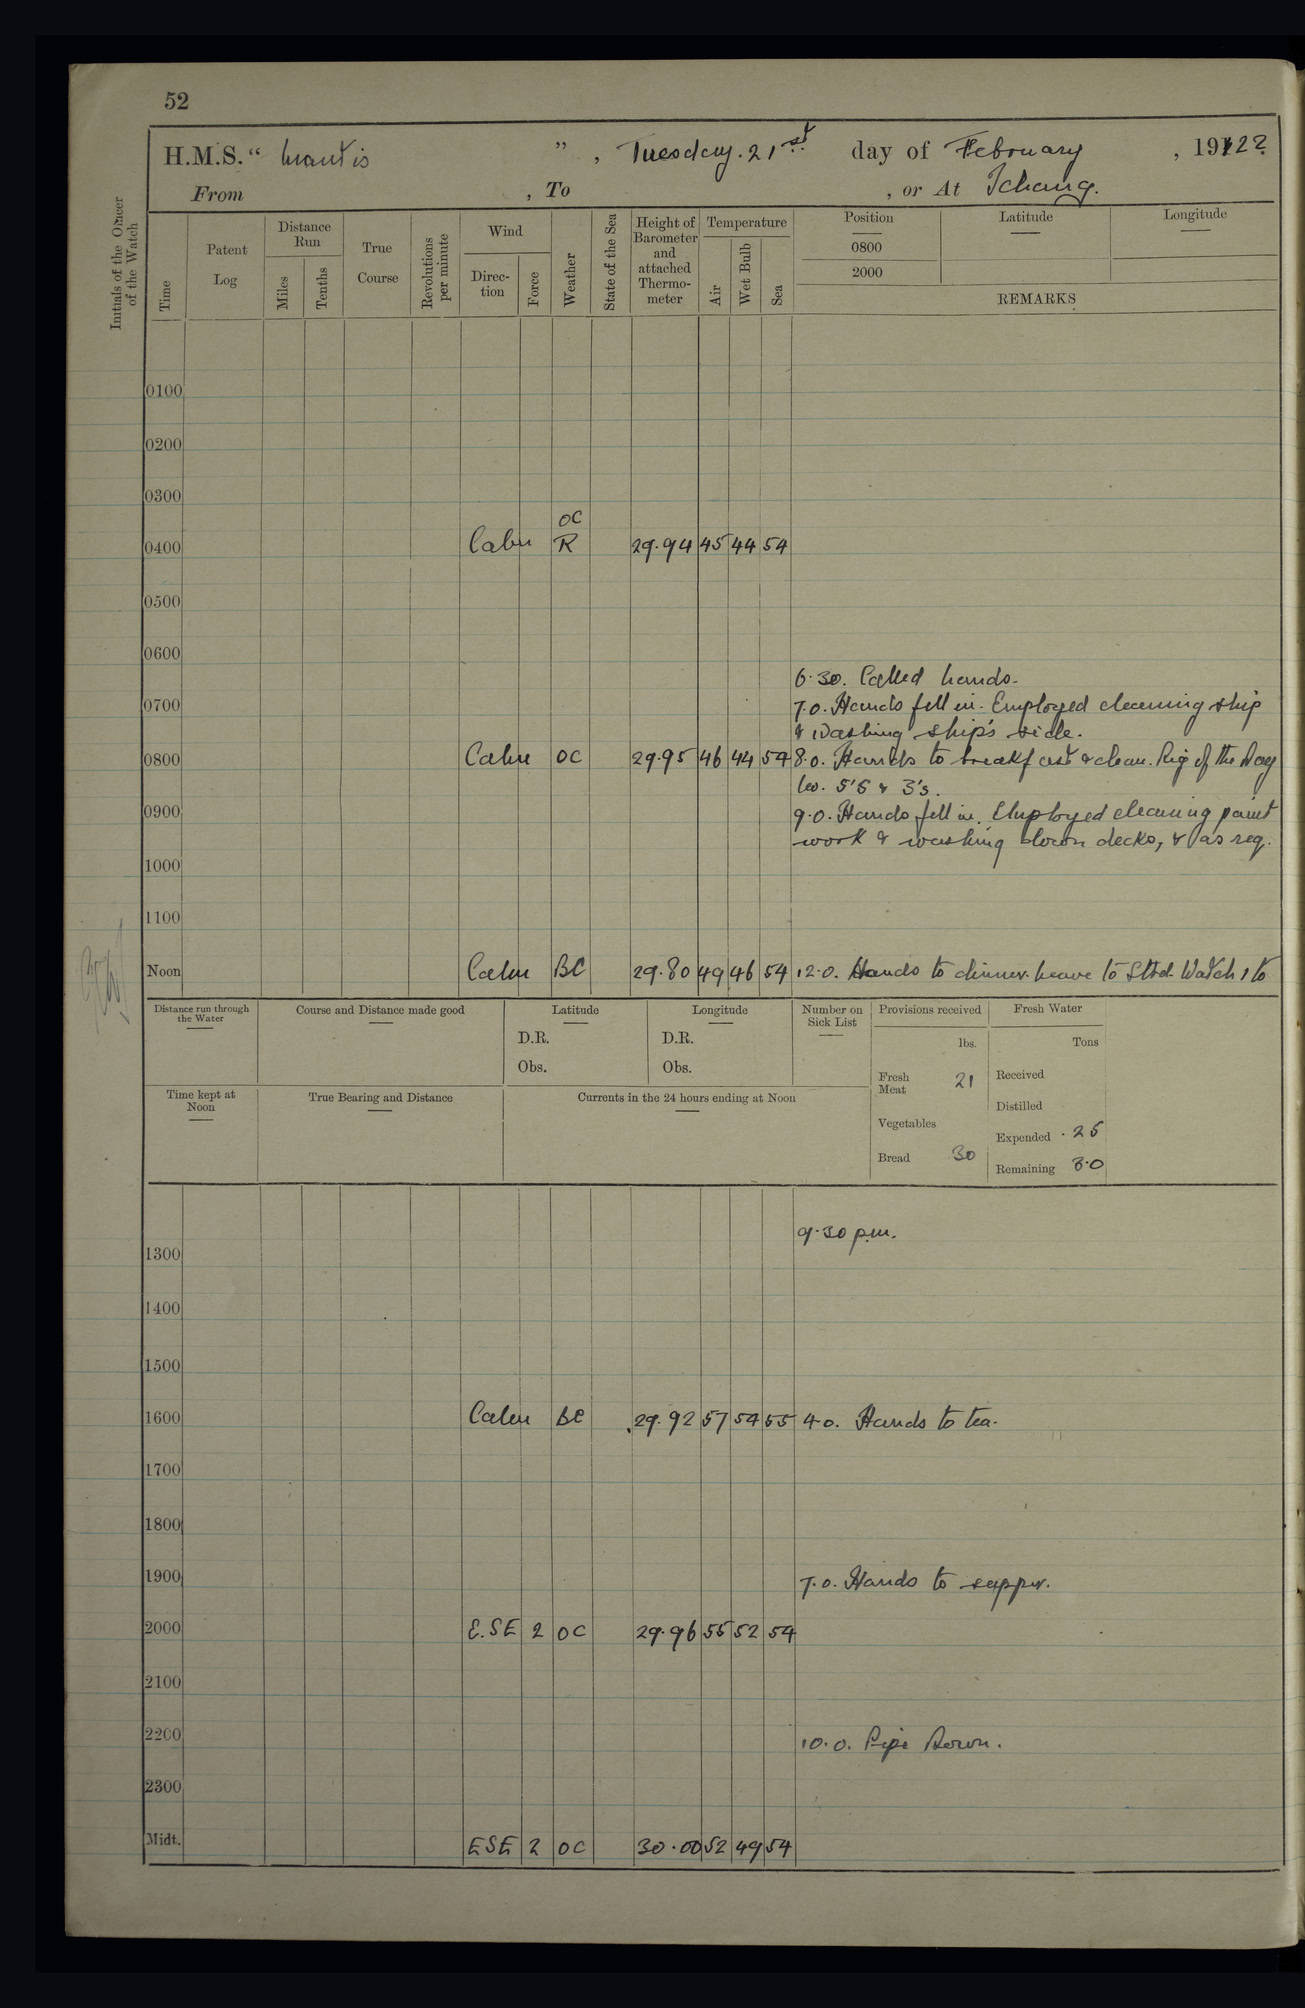 52
H.M.S. “ Mantis ” , Tuesday. 21st day of February , 1922
From , To , or At Ichang.
Initials of the Officer of the Watch
Time
Patent Log
Distance Run
Miles
Tenths
True Course
Revolutions per minute
Wind
Direction
Force
Weather
State of the Sea
Height of Barometer and attached Thermometer
Temperature
Air
Wet Bulb
Sea
Position
0800
2000
Latitude
Longitude
REMARKS
0100
0200
0300
OC
0400 Calm R 29.94 45 44 54
0500
0600
6.30. Called hands.
0700 7.0. Hands fell in. Employed cleaning ship
& Washing ship's side.
0800 Calm OC 29.95 46 44 54 8.0. Hands to breakfast & clean. Rig of the Day
5's & 3's.
0900 9.0. Hands fell in. Employed cleaning paint
work & washing down decks, & as req.
1000
1100
Noon Calm BC 29.80 49 46 54 12.0. Hands to dinner. Leave to Stbd. Watch 1 to
Distance run through the Water
Course and Distance made good
Latitude
D.R.
Obs.
Longitude
D.R.
Obs.
Number on Sick List
Provisions received
lbs.
Fresh Meat 21
Vegetables
Bread 30
Fresh Water
Tons
Received
Distilled
Expended .25
Remaining 3.0
Time kept at Noon
True Bearing and Distance
Currents in the 24 hours ending at Noon
9.30 p.m.
1300
1400
1500
1600 Calm BC 29.92 57 54 55 4.0. Hands to tea.
1700
1800
1900 7.0. Hands to supper.
2000 E.SE 2 OC 29.96 55 52 54
2100
2200 10.0. Pipe Down.
2300
Midt. ESE 2 OC 30.00 52 49 54